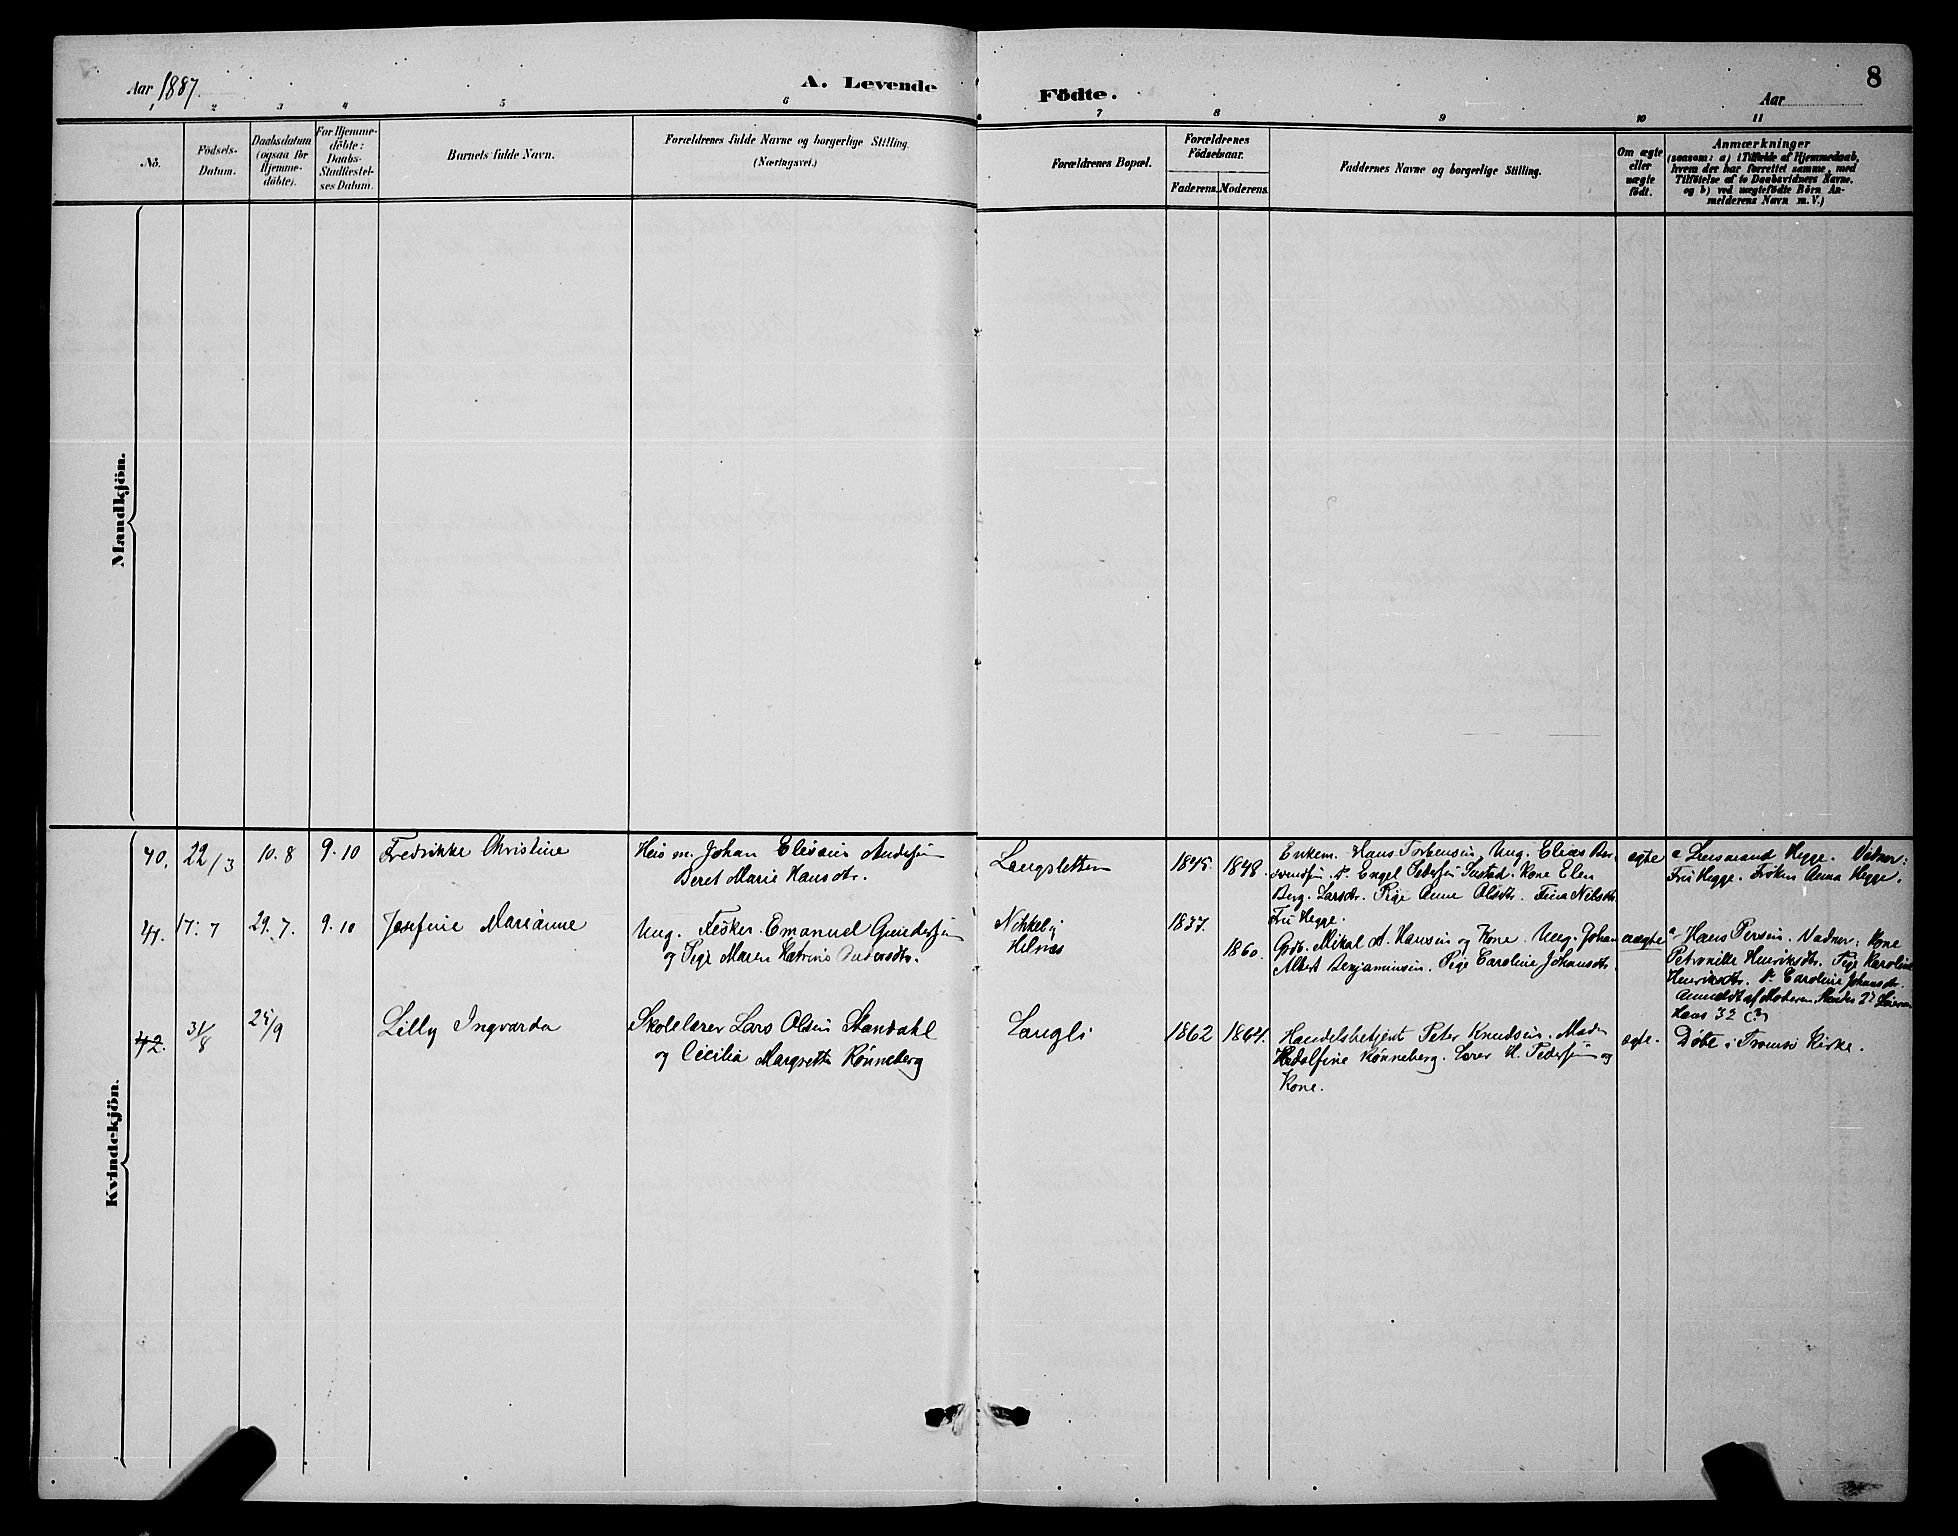 Aar 1887.
A. Levende Födte.
Aar
8
1 2 3 4 5 6 7 8 9 10 11
No.
Födsels-
Datum.
Daabsdatum
(ogsaa for
Hjemme-
döbte).
For Hjemme-
döbte:
Daabs-
Stadfæstel-
ses Datum.
Barnets fulde Navn.
Forældrenes fulde Navne og borgerlige Stilling.
(Næringsvei.)
Forældrenes Bopæl.
Forældrenes
Födselsaar.
Faderens. Moderens.
Faddernes Navne og borgerlige Stilling.
Om ægte
eller
uægte
födt.
Anmærkninger
(saasom: a) i Tilfælde af Hjemmedaab,
hvem der har forrettet samme, med
Tilföielse af to Daabsvidners Navne.
og b) ved uægtefödte Börn An-
melderens Navn m. V.)
Mandkjön.
Kvindekjön.
40. 22/3 10.8 9.10 Fredrikke Christine
Huus m. Johan Anders
Beret Marie Hansdtr.
Langsletten 1845. 1848.
Enkem. Hans Torbensen, Ung. Elias
Engel Pedersen Kone Elen
Berg. Larsdtr. Pige Anne Olsdtr. Nilsdtr.
Fru Hegge.
ægte a Lensmand Hegge. Vidner:
Fru Hegge. Frøken Anna Hegge.
41. 17.7 29.7. 9.10 Josefine Marianne
Ung. Fisker Emanuel Gundersen
og Pige Maren Katrine Andersdtr.
Nikkeby
Helnæs
1837. 1860.
Gdb. Mikal A. Hansen og Kone. Ung. Johan
Albert Benjaminsen. Pige Caroline Johansdtr.
uægte a Hans Persen. Vidner: Kone
Petronille Henriksdtr. Pige Karoline
Henriksdtr. P. Caroline Johansdtr.
Anmeldt af Moderen. Hendes 2det
Hans 3
42. 31/8 25/9 Lilly Ingvarda
Skolelærer Lars Olsen Standahl
og Cecilia Margrethe Rønneberg
Langli 1862 1864.
Handelsbetjent Peter Knudsen. Madm
Hedolfine Rønneberg. Lærer H. Pedersen og
Kone.
ægte. Døbt i Tromsø Kirke.